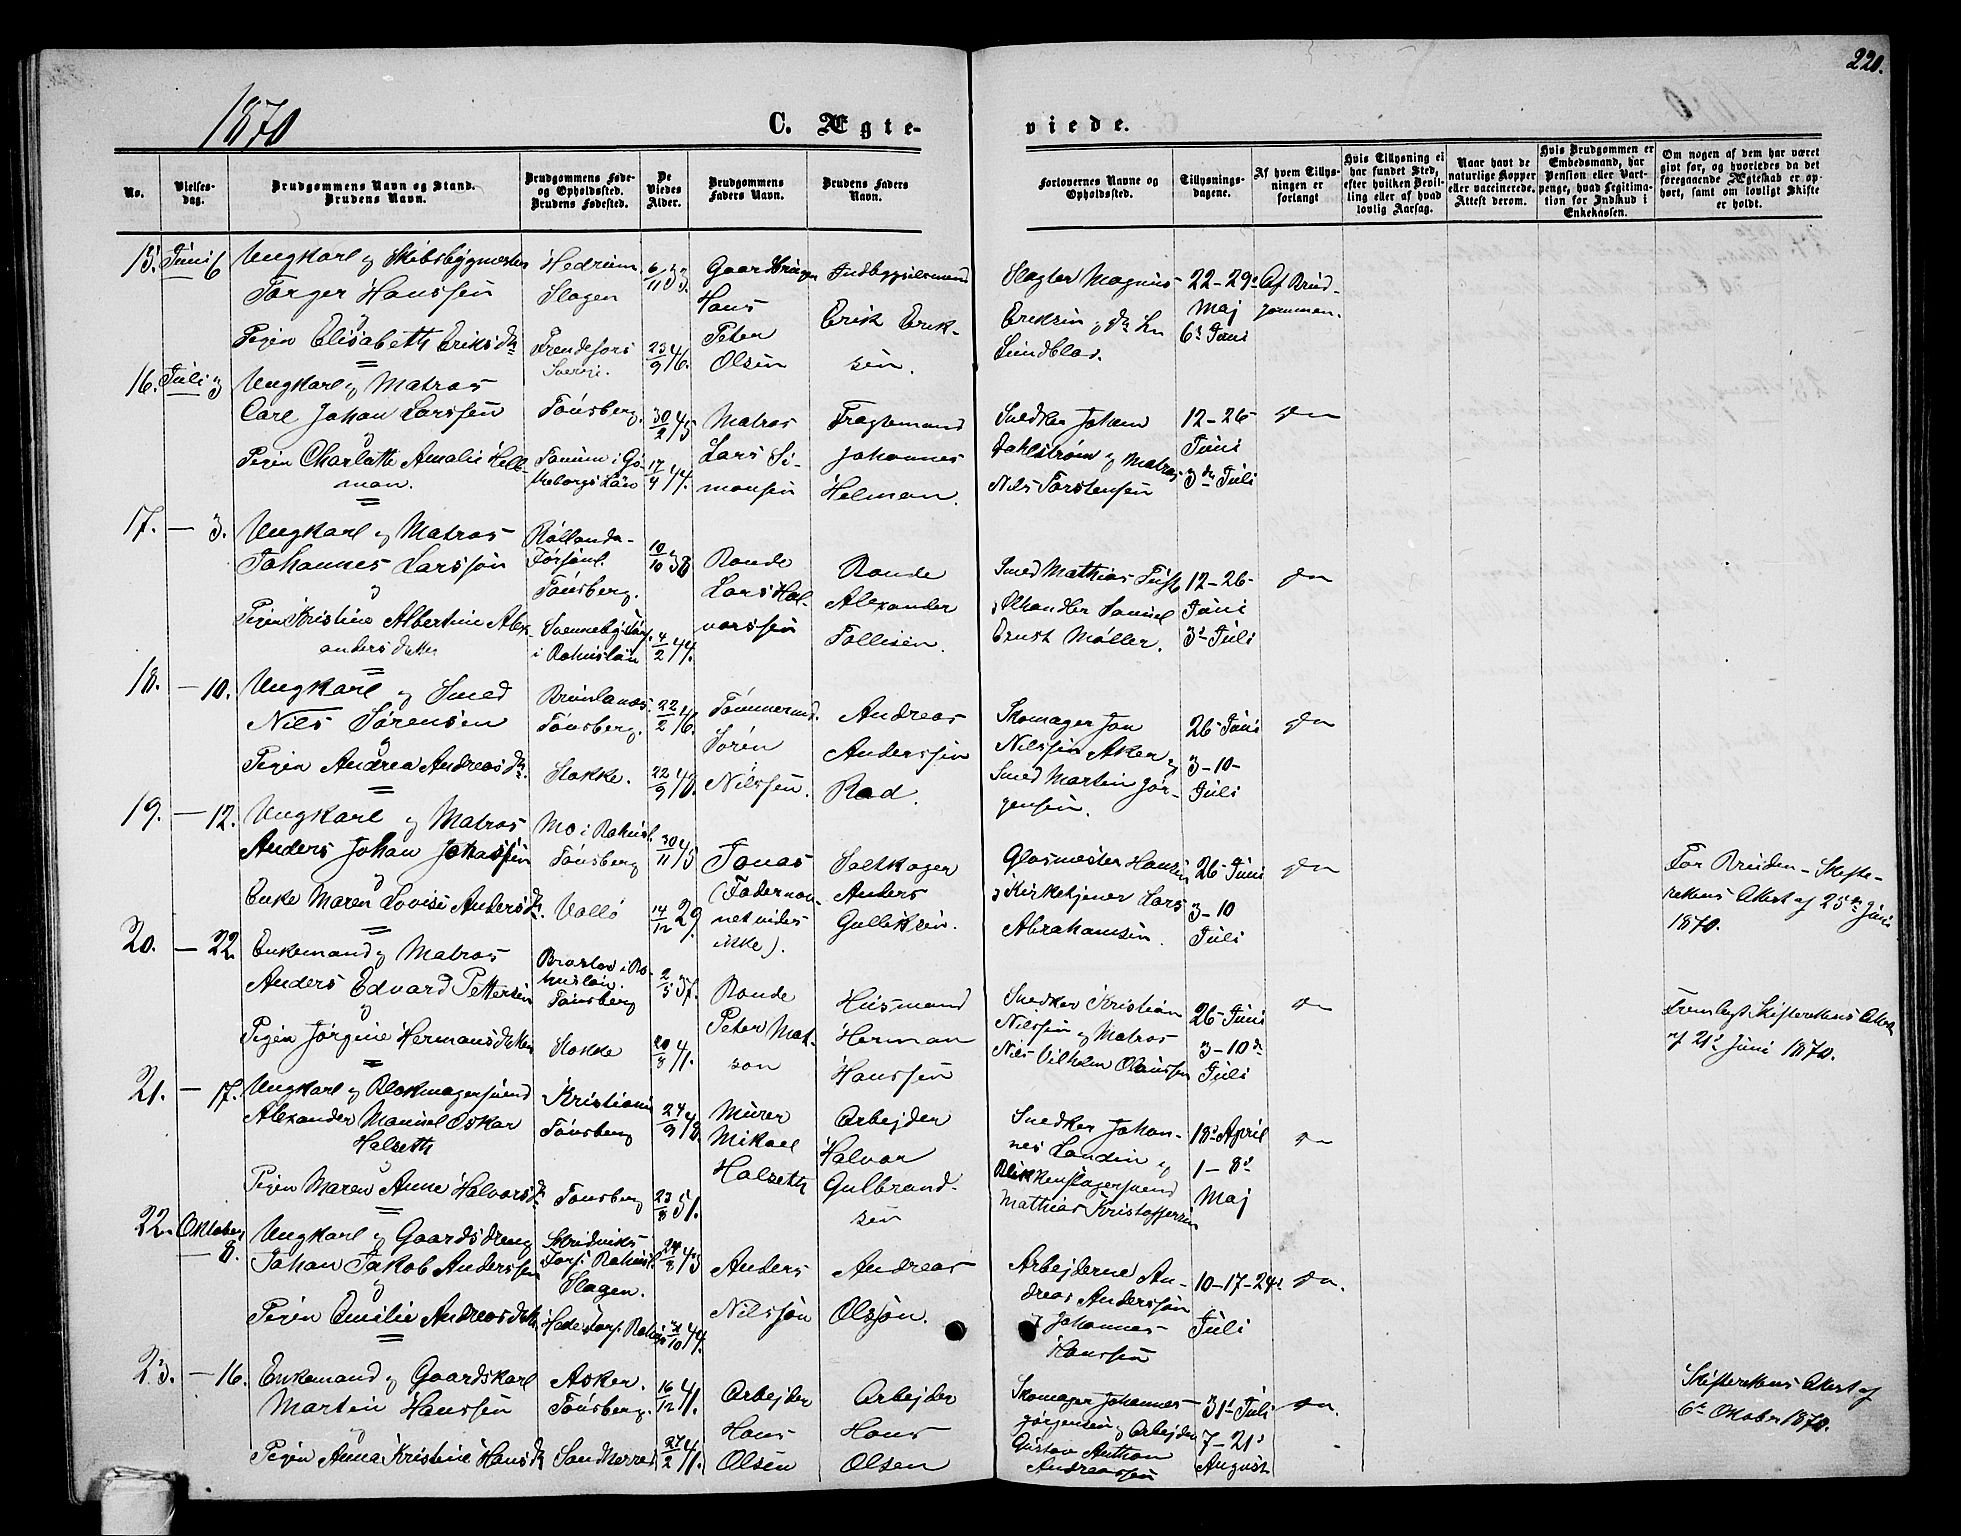 220.
1870
C. Ægte-
viede.
No.
Vielses-
dag.
Brudgommens Navn og Stand.
Brudens Navn.
Brudgommens Føde-
og Opholdssted.
Brudens Fødested.
De
Viedes
Alder.
Brudgommens
Faders Navn.
Brudens Faders
Navn.
Forlovernes Navne og
Opholdssted.
Tillysnings-
dagene.
Af hvem Tillys-
ningen er
forlangt
Hvis Tillysning ei
har fundet Sted,
efter hvilken Bevil-
ling eller af hvad
lovlig Aarsag.
Naar havt de
naturlige Kopper
eller vaccinerede.
Attest derom.
Hvis Brudgommen er
Embedsmand, har
Pension eller Vart-
penge, hvad Legitima-
tion for Indskud i
Enkekassen.
Om nogen af dem har været
givt før, og hvorledes da det
foregaaende Ægteskab er op-
hørt, samt om lovligt Skifte
er holdt.
15. Juni 6
Ungkarl og Skibsbygmester
Torger Hanssen
og
Pigen Elisabeth Eriksd.
Hedrum
Slagen
Frendefors
Sverge.
6/11 33.
23/9 46.
Gaardbruger
Hans
Peter
Olsen
Indbygselsmand
Erik Erik-
sen.
Slagter Magnus
Eriksen og do
Sundblad.
22-29de
Maj
6te Juni
Af Brud-
gommen.
16. Juli 3
Ungkarl og Matros
Carl Johan Larssen
og
Pigen Charlotte Amalie Hell-
man.
Tønsberg.
Tanum i Gø-
theborgs Län
30/2 45
17/4 44.
Matros
Lars Si-
monsen
Fragtemand
Johannes
Helman.
Snedker Johan
Dahlstrøm og Matros
Nils Torstensen
12-26
Juni
3de Juli
do
17. - 3.
Ungkarl og Matros
Johannes Larssøn
og
Pigen Kristine Albertine Alex-
anders datter
Tønsberg.
i Bohuslän
10/10 38
4/2 44.
Bonde
Lars Hal-
varssen
Bonde
Alexander
Tollisen.
Smed Mathias
Samuel
Ernst Møller.
12-26
Juni
3de Juli
do
18. - 10.
Ungkarl og Smed
Nils Sørensen
og
Pigen Andrea Andreasd.
Brunlanes
Tønsberg.
Stokke.
22/2 46.
22/9 48.
Tømmermd.
Søren
Nilssen.
Andreas
Anderssen
Rød.
Skomager Jon
Nilssen Aker og
Smed Martin Jør-
gensen.
26 Juni
3-10-
Juli
do
19. - 12.
Ungkarl og Matros
Anders Johan Johnssen
og
Enke Maren Lovise Andersd.
Mo i Bohusl.
Tønsberg
Vallø
30/11 45
14/12 29.
Jonas
(Fadernav-
net vides
ikke).
Saltkoger
Anders
Gulliksen.
Glasmester Hansen
og Kirketjener Lars
Abrahamsen.
26 Juni
3-10
Juli
do
For Bruden - Skifte-
rettens Attest af 25de Juni
1870.
20. - 22.
Enkemand og Matros
Anders Edvard Pettersen
og
Pigen Jørgine Hermansdatter
Brastad i Bo-
huslän.
Tønsberg
Stokke
2/5 37.
20/8 41.
Bonde
Peter Mat-
son
Husmand
Herman
Hanssen
Snedker Kristian
Nilssen og Matros
Nils Vilhelm Olaussen
26 Juni
3-10de
Juli
do
Fremlagt Skifterettens Attest
af 21de Juni 1870.
21. - 17.
Ungkarl og Blokmagersvend
Alexander Manuel Oskar
Halseth
og
Pigen Maren Anne Halvorsd.
Kristiania
Tønsberg
Tønsberg
24/9 48.
23/8 51.
Murer
Mikael
Halseth
Arbejder
Halvor
Gulbrand-
sen
Snedker Johan-
nes Landin og
Blikkenslagersvend
Mathias Kristoffersen
18de April
1-8de
Maj
do
22. Oktober
- 8.
Ungkarl og Gaardsdreng
Johan Jakob Anderssen
og
Pigen Emilie Andreasdatter
Skredviks
Fors. Bohusl.
Slagen.
Hede Fors. Bohusl.
24/8 43
31/10 44.
Anders
Nilssøn
Andreas
Olssøn.
Arbejderne An-
dreas Anderssøn
og Johannes
Hanssen
10-17-24de
Juli
do.
23. - 16.
Enkemand og Gaardskarl
Martin Hanssen
og
Pigen Anna Kristine Hansd.
Asker.
Tønsberg.
Sandherred
16/12 41.
27/2 41.
Arbejder
Hans
Olsen
Arbejder
Hans
Olsen
Skomager Johannes
Jørgensen og Arbejder
Gustav Anthon
Andreassen
31te Juli
7-21de
August
do.
Skifterettens Attest af
6te Oktober 1870.